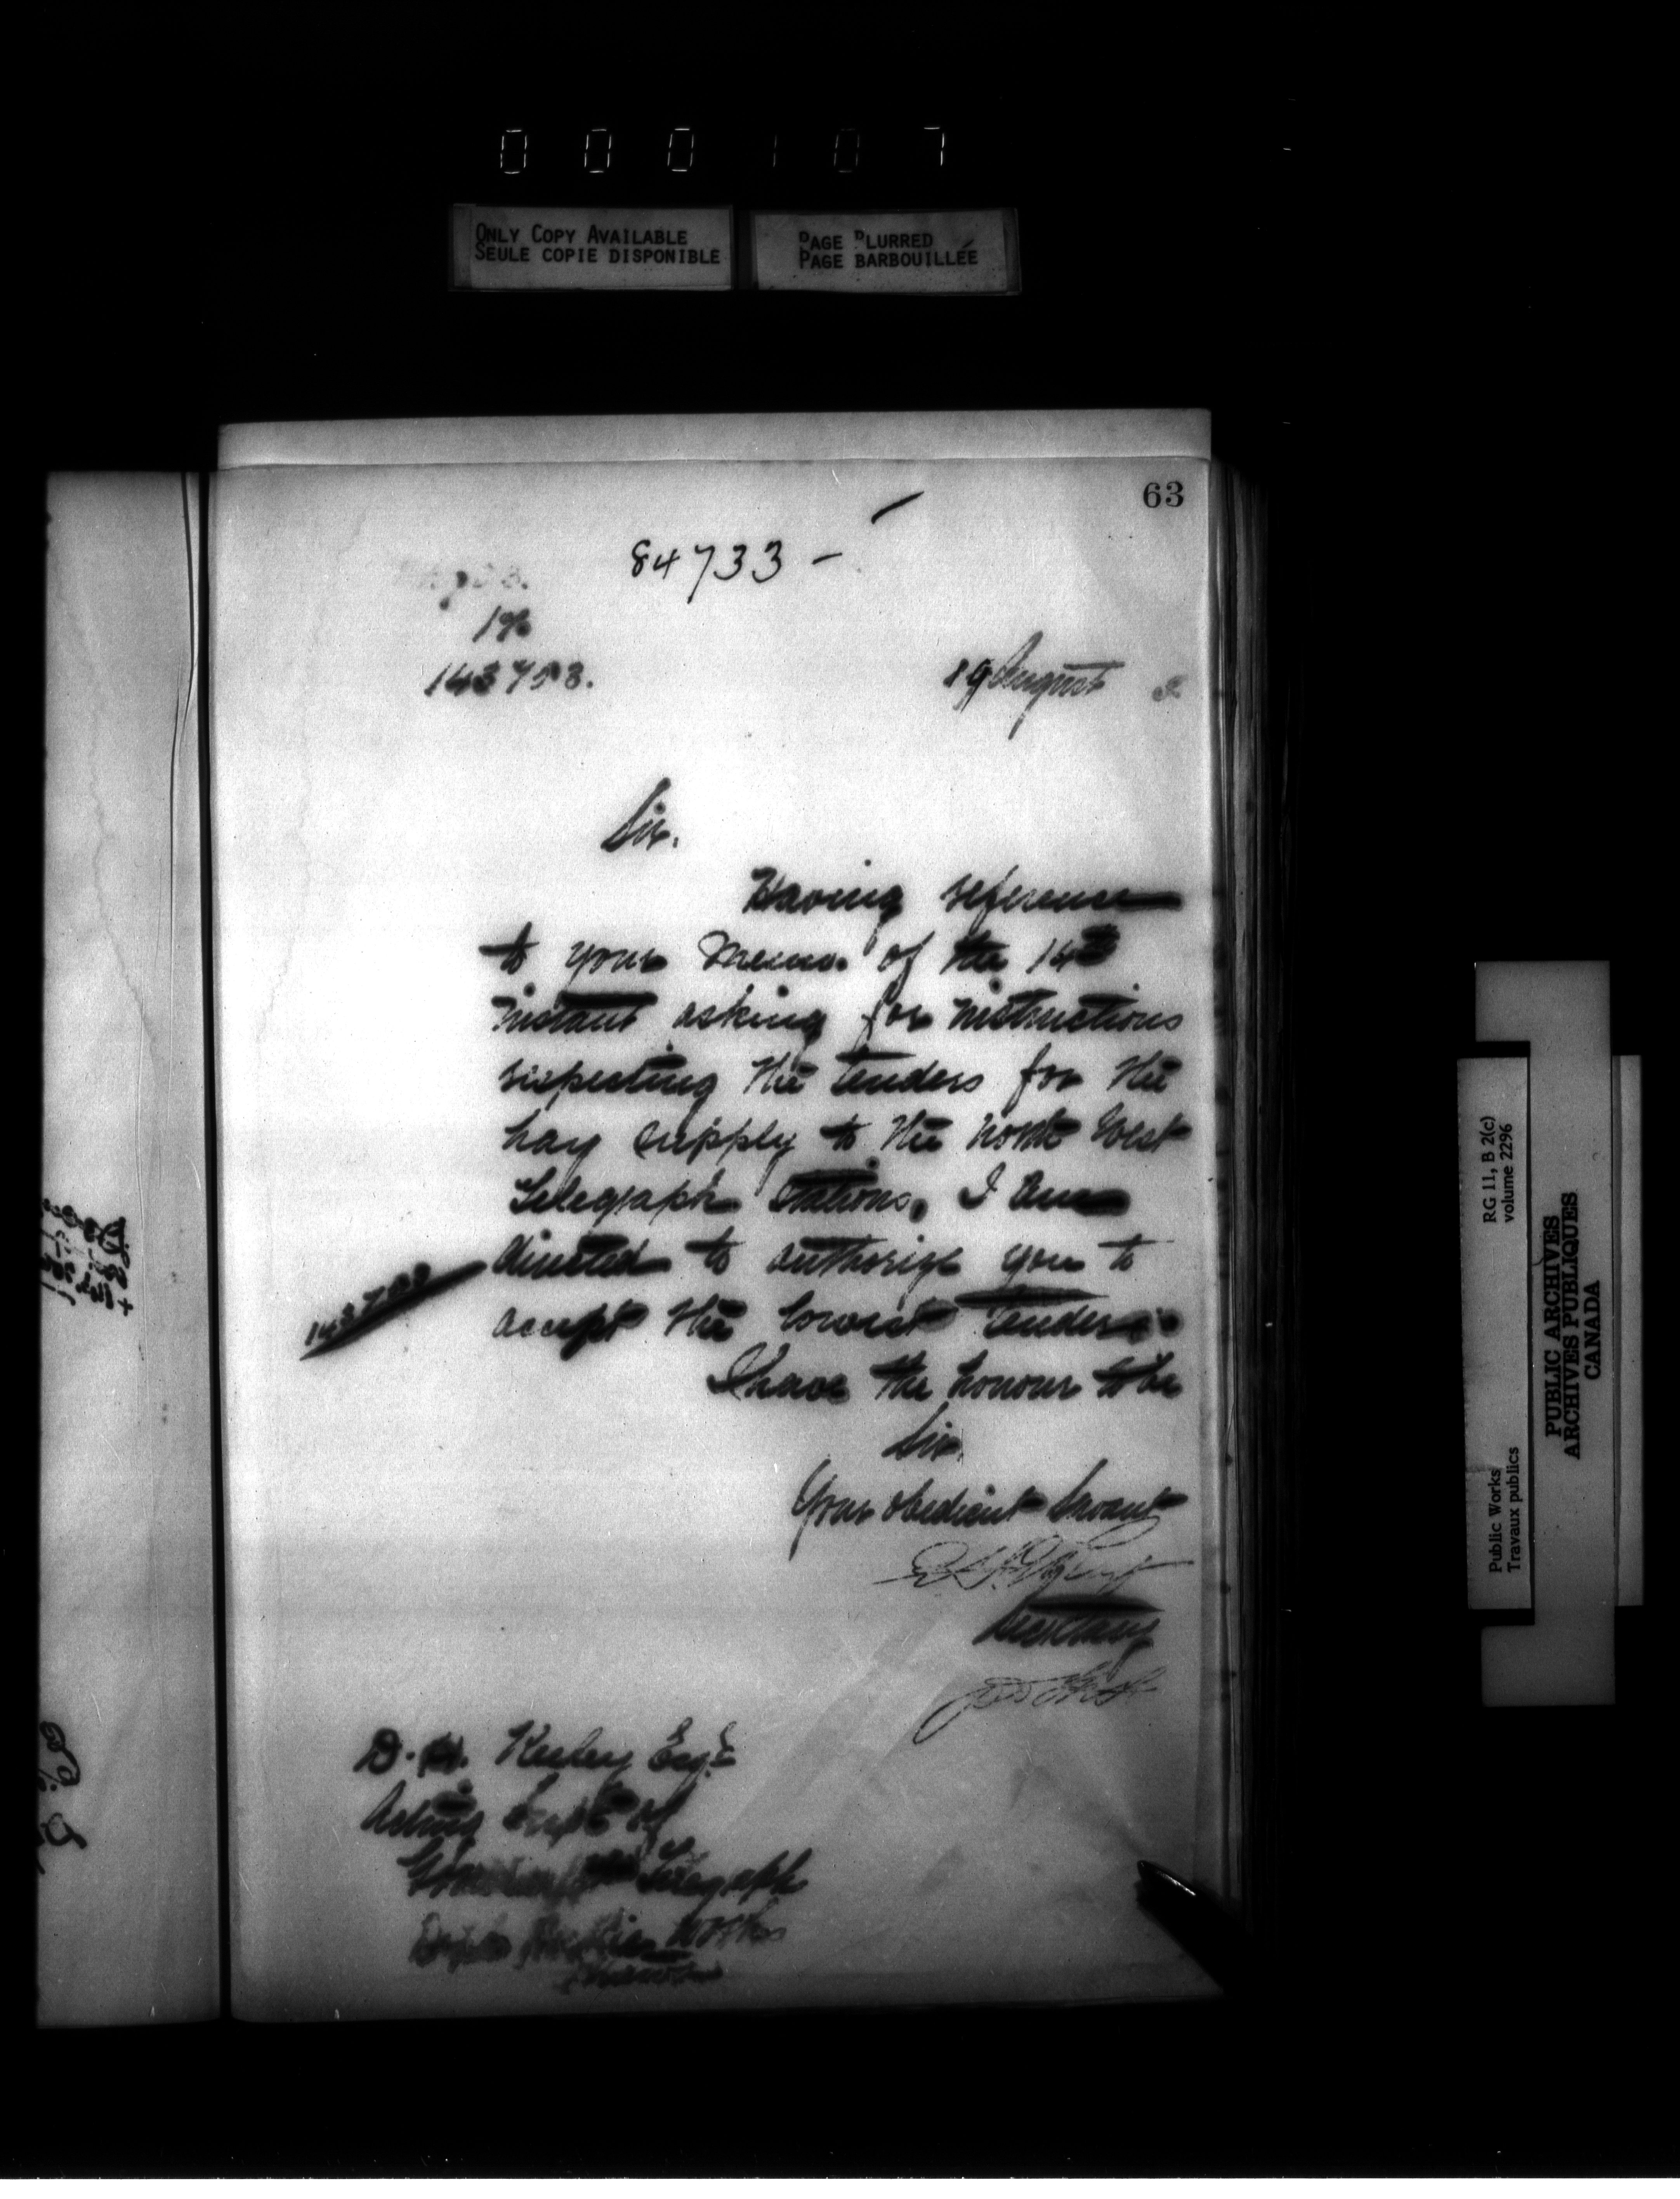 000107
ONLY COPY AVAILABLE
SEULE COPIE DISPONIBLE
PAGE BLURRED
PAGE BARBOUILLÉE
63
84733 -
143753.
19 August
Sir.
Having reference
to your Memo. of the 14th
instant asking for instructions
respecting the tenders for the
hay supply to the North West
Telegraph Stations, I am
directed to authorize you to
accept the lowest tenders.
I have the honour to be
Sir,
Your obedient Servant
Secretary
D. H. Keeley Esqr
Acting Supt of
Government Telegraph
Dept Public Works
Ottawa
RG 11, B 2(c)
volume 2296
Public Works
Travaux publics
PUBLIC ARCHIVES
ARCHIVES PUBLIQUES
CANADA